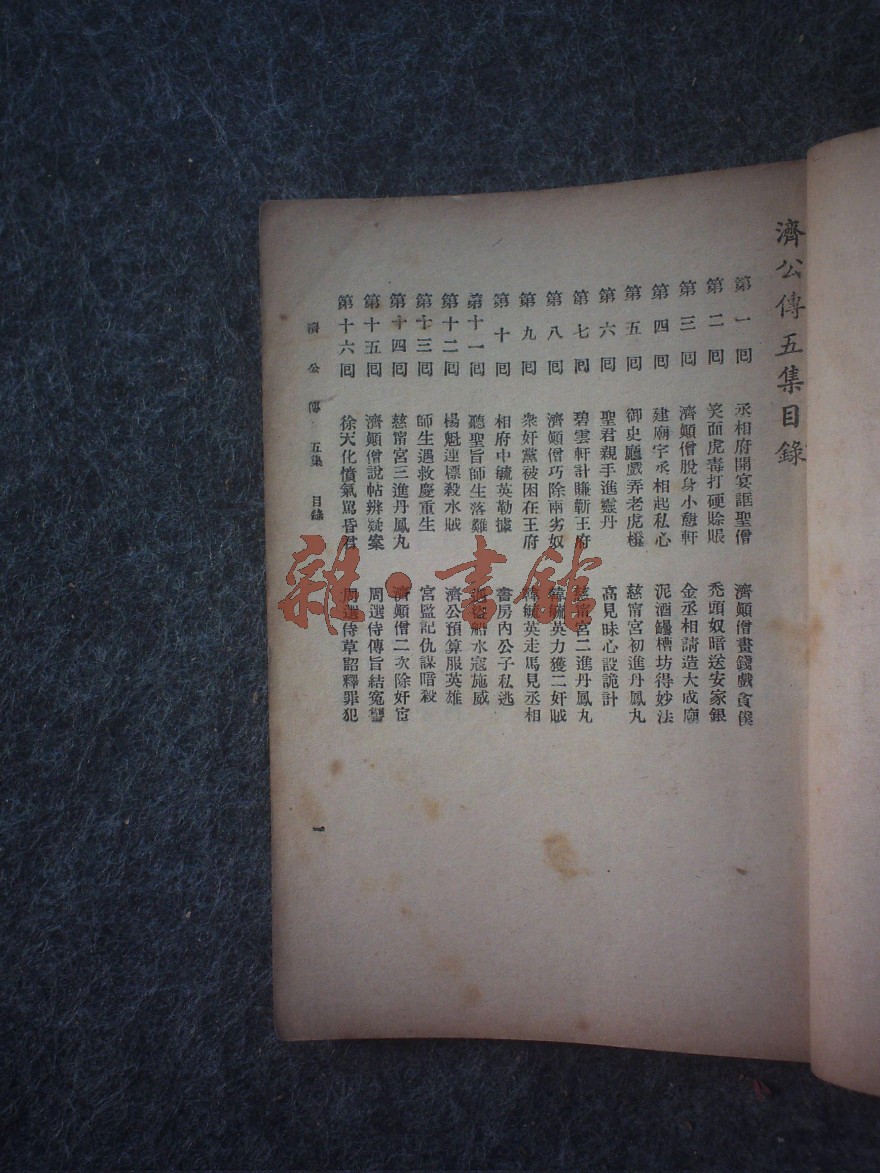 濟公傳五集目錄
第一回 丞相府開宴誆聖僧 濟顛僧畫錢戲貪僕
第二回 笑面虎毒打硬賒賬 禿頭奴暗送安家銀
第三回 濟顛僧脫身小憩軒 金丞相請造大成廟
第四回 建廟宇丞相起私心 泥酒罎槽坊得妙法
第五回 御史廳戲弄老虎櫈 慈甯宮初進丹鳳丸
第六回 聖君親手進靈丹 高見昧心設詭計
第七回 碧雲軒計賺靳王府 慈甯宮二進丹鳳丸
第八回 濟顛僧巧除兩劣奴 毓英力獲二奸賊
第九回 衆奸黨被困在王府 敏英走馬見丞相
第十回 相府中毓英勒據 書房內公子私逃
第十一回 聽聖旨師生落難 盜船水寇施威
第十二回 楊魁連標殺水賊 濟公預算服英雄
第十三回 師生遇救慶重生 宮監記仇謀暗殺
第十四回 慈甯宮三進丹鳳丸 濟顛僧二次除奸宦
第十五回 濟顛僧說帖辨疑案 周選侍傳旨結冤讐
第十六回 徐天化憤氣罵昏君 周選侍草詔釋罪犯
濟公傳 五集 目錄 一
雜·書館